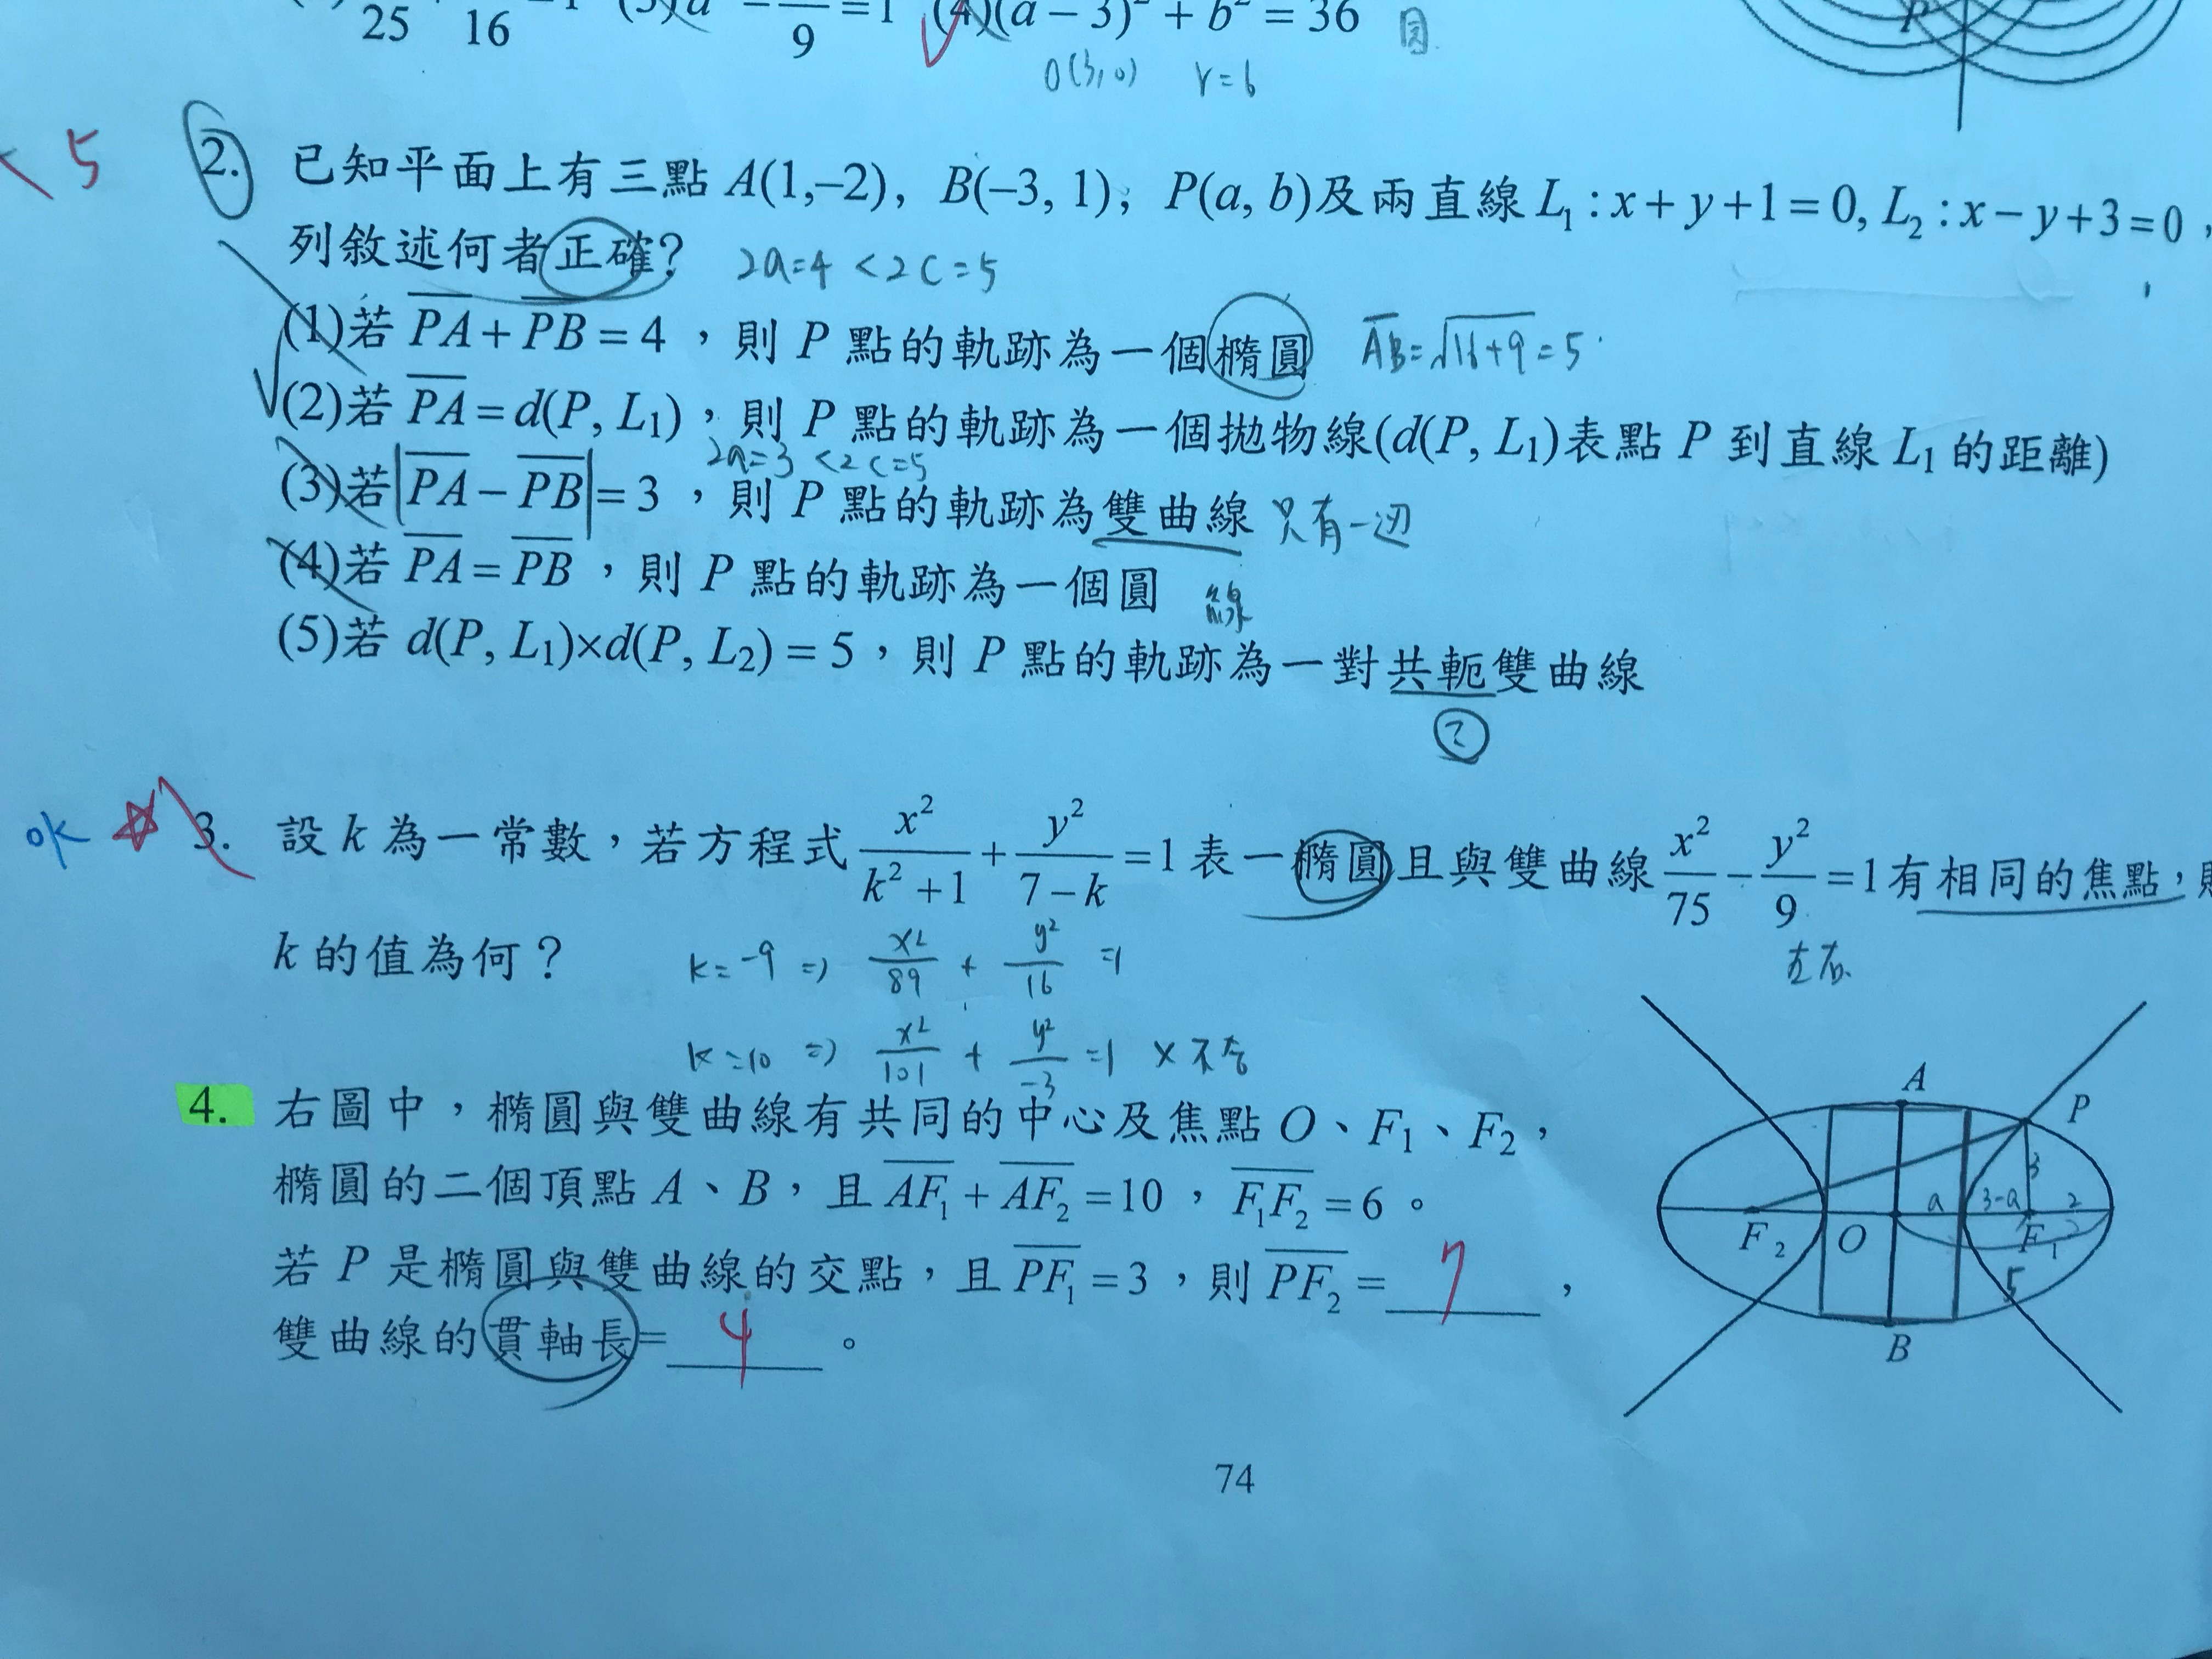 25 16 =1 (3) a² − 9 =1 (4)(a − 3)² + b² = 36 圓
O(3,0) r=6
P
< 5
2. 已知平面上有三點 A(1,–2), B(–3, 1); P(a, b)及兩直線 L₁ : x + y + 1 = 0, L₂ : x − y + 3 = 0 ,
列敘述何者正確? 2a=4 < 2c=5
(1)若 PA + PB = 4 ,則 P 點的軌跡為一個橢圓 AB=√16+9=5
(2)若 PA = d(P, L₁),則 P 點的軌跡為一個拋物線(d(P, L₁)表點 P 到直線 L₁ 的距離)
2a=3 <2c=5
(3)若|PA − PB| = 3 ,則 P 點的軌跡為雙曲線 只有一边
(4)若 PA = PB ,則 P 點的軌跡為一個圓 線
(5)若 d(P, L₁)×d(P, L₂) = 5,則 P 點的軌跡為一對共軛雙曲線
?
ok ☆ 3. 設 k 為一常數,若方程式 x²/(k² + 1) + y²/(7 − k) = 1 表一橢圓且與雙曲線 x²/75 − y²/9 = 1 有相同的焦點,
左右
k 的值為何? k=-9 ⇒ x²/89 + y²/16 =1
k=10 ⇒ x²/101 + y²/-3 =1 × 不合
4. 右圖中,橢圓與雙曲線有共同的中心及焦點 O、F₁、F₂,
橢圓的二個頂點 A、B,且 AF₁ + AF₂ = 10 , F₁F₂ = 6 。
若 P 是橢圓與雙曲線的交點,且 PF₁ = 3 ,則 PF₂ = 7 ,
雙曲線的貫軸長= 4 。
A
P
3
a 3-a 2
F₂ O F₁
5
B
74